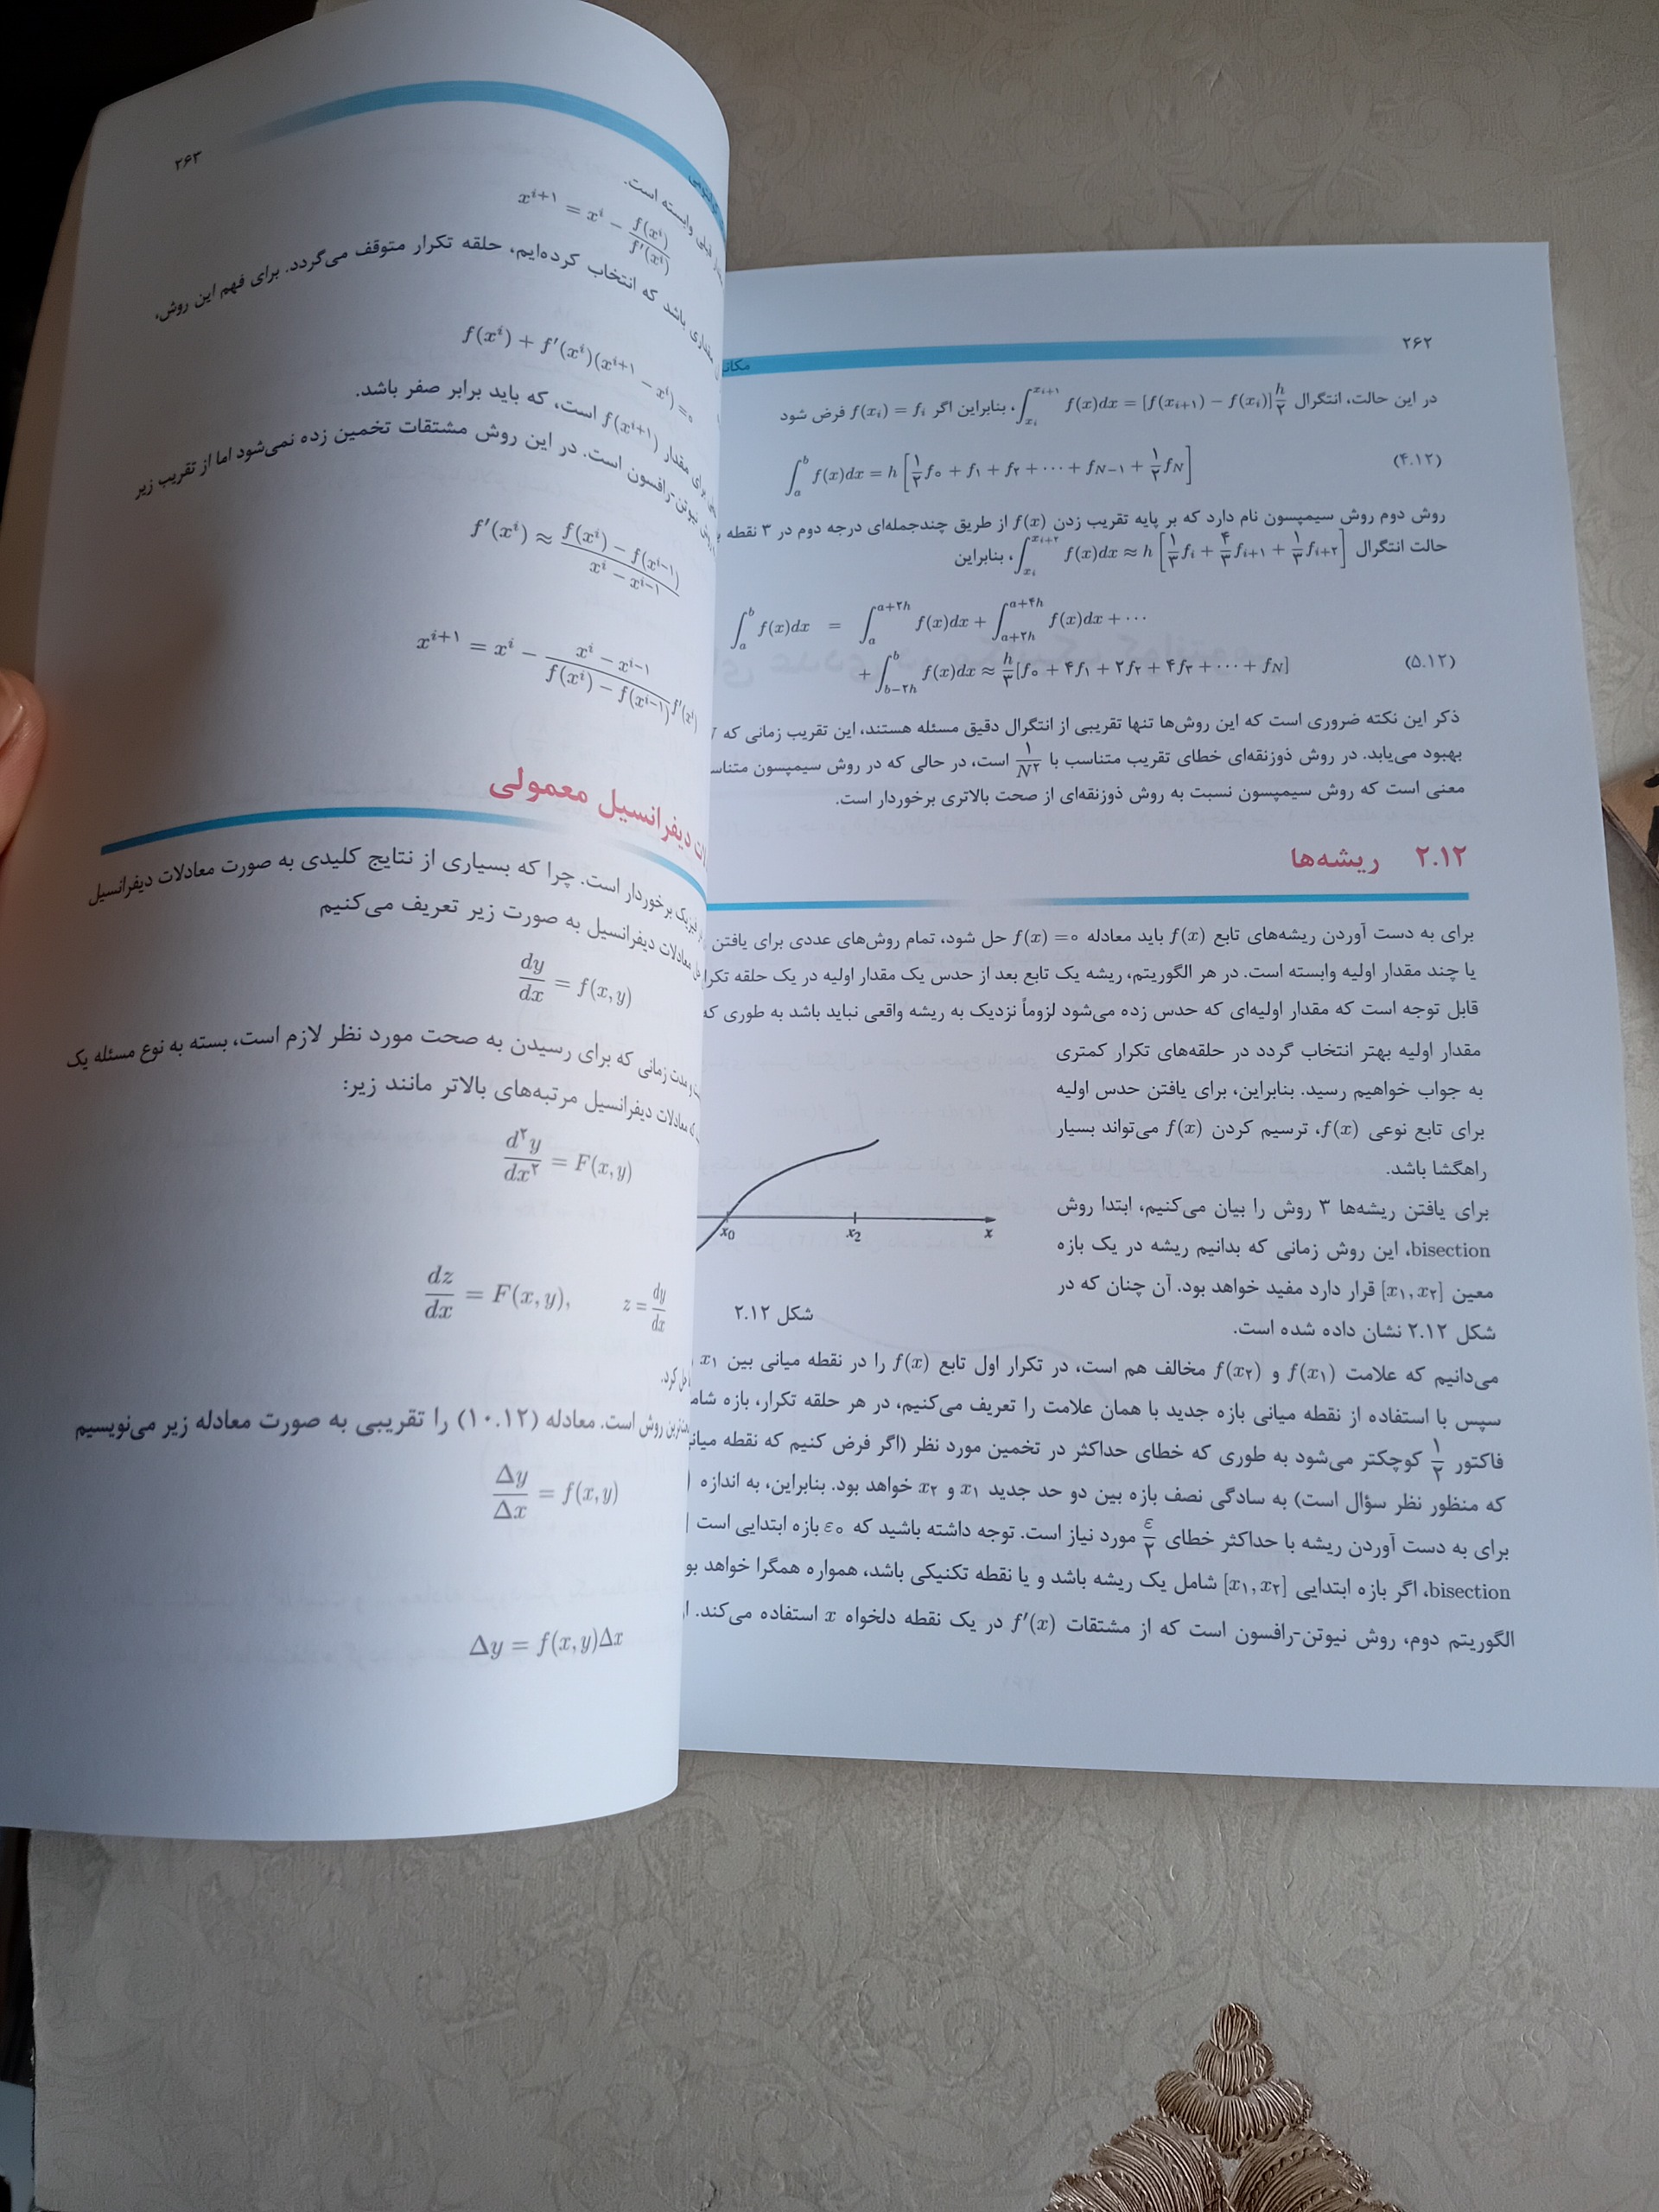 ۲۶۲
مکانیـ
در این حالت، انتگرال \int_{x_i}^{x_{i+۱}} f(x)dx = [f(x_{i+۱}) − f(x_i)]\frac{h}{۲}، بنابراین اگر f(x_i) = f_i فرض شود
\int_a^b f(x)dx = h [\frac{۱}{۲}f_۰ + f_۱ + f_۲ + ⋯ + f_{N−۱} + \frac{۱}{۲}f_N] (۴.۱۲)
روش دوم روش سیمپسون نام دارد که بر پایه تقریب زدن f(x) از طریق چندجمله‌ای درجه دوم در ۳ نقطه
حالت انتگرال \int_{x_i}^{x_{i+۲}} f(x)dx ≈ h [\frac{۱}{۳}f_i + \frac{۴}{۳}f_{i+۱} + \frac{۱}{۳}f_{i+۲}]، بنابراین
\int_a^b f(x)dx = \int_a^{a+۲h} f(x)dx + \int_{a+۲h}^{a+۴h} f(x)dx + ⋯
+ \int_{b−۲h}^b f(x)dx ≈ \frac{h}{۳}[f_۰ + ۴f_۱ + ۲f_۲ + ۴f_۳ + ⋯ + f_N] (۵.۱۲)
ذکر این نکته ضروری است که این روش‌ها تنها تقریبی از انتگرال دقیق مسئله هستند، این تقریب زمانی که
بهبود می‌یابد. در روش ذوزنقه‌ای خطای تقریب متناسب با \frac{۱}{N^۲} است، در حالی که در روش سیمپسون
معنی است که روش سیمپسون نسبت به روش ذوزنقه‌ای از صحت بالاتری برخوردار است.
۲.۱۲ ریشه‌ها
برای به دست آوردن ریشه‌های تابع f(x) باید معادله f(x) = ۰ حل شود، تمام روش‌های عددی برای یافتن
یا چند مقدار اولیه وابسته است. در هر الگوریتم، ریشه یک تابع بعد از حدس یک مقدار اولیه در یک حلقه
قابل توجه است که مقدار اولیه‌ای که حدس زده می‌شود لزوماً نزدیک به ریشه واقعی نباید باشد به طوری که
مقدار اولیه بهتر انتخاب گردد در حلقه‌های تکرار کمتری
به جواب خواهیم رسید. بنابراین، برای یافتن حدس اولیه
برای تابع نوعی f(x)، ترسیم کردن f(x) می‌تواند بسیار
راهگشا باشد.
برای یافتن ریشه‌ها ۳ روش را بیان می‌کنیم، ابتدا روش
bisection، این روش زمانی که بدانیم ریشه در یک بازه
معین [x_۱, x_۲] قرار دارد مفید خواهد بود. آن چنان که در
شکل ۲.۱۲ نشان داده شده است.
x_0 x_2 x
شکل ۲.۱۲
می‌دانیم که علامت f(x_۱) و f(x_۲) مخالف هم است، در تکرار اول تابع f(x) را در نقطه میانی بین x_۱
سپس با استفاده از نقطه میانی بازه جدید با همان علامت را تعریف می‌کنیم، در هر حلقه تکرار، بازه
فاکتور \frac{۱}{۲} کوچکتر می‌شود به طوری که خطای حداکثر در تخمین مورد نظر (اگر فرض کنیم که نقطه
که منظور نظر سؤال است) به سادگی نصف بازه بین دو حد جدید x_۱ و x_۲ خواهد بود. بنابراین، به اندازه
برای به دست آوردن ریشه با حداکثر خطای \frac{ε}{۲} مورد نیاز است. توجه داشته باشید که ε_۰ بازه ابتدایی است
bisection، اگر بازه ابتدایی [x_۱, x_۲] شامل یک ریشه باشد و یا نقطه تکنیکی باشد، همواره همگرا خواهد
الگوریتم دوم، روش نیوتن-رافسون است که از مشتقات f′(x) در یک نقطه دلخواه x استفاده می‌کند.
۲۶۳
قبلی وابسته است.
x^{i+۱} = x^i − \frac{f(x^i)}{f′(x^i)}
مقداری باشد که انتخاب کرده‌ایم، حلقه تکرار متوقف می‌گردد. برای فهم این روش،
f(x^i) + f′(x^i)(x^{i+۱} − x^i) = ۰
برای مقدار f(x^{i+۱}) است، که باید برابر صفر باشد.
نیوتن-رافسون است. در این روش مشتقات تخمین زده نمی‌شود اما از تقریب زیر
f′(x^i) ≈ \frac{f(x^i) − f(x^{i−۱})}{x^i − x^{i−۱}}
x^{i+۱} = x^i − \frac{x^i − x^{i−۱}}{f(x^i) − f(x^{i−۱})} f′(x^i)
دیفرانسیل معمولی
فیزیک برخوردار است. چرا که بسیاری از نتایج کلیدی به صورت معادلات دیفرانسیل
معادلات دیفرانسیل به صورت زیر تعریف می‌کنیم
\frac{dy}{dx} = f(x, y)
و مدت زمانی که برای رسیدن به صحت مورد نظر لازم است، بسته به نوع مسئله یک
معادلات دیفرانسیل مرتبه‌های بالاتر مانند زیر:
\frac{d^۲y}{dx^۲} = F(x, y)
\frac{dz}{dx} = F(x, y), z = \frac{dy}{dx}
حل کرد.
روش است. معادله (۱۰.۱۲) را تقریبی به صورت معادله زیر می‌نویسیم
\frac{Δy}{Δx} = f(x, y)
Δy = f(x, y)Δx